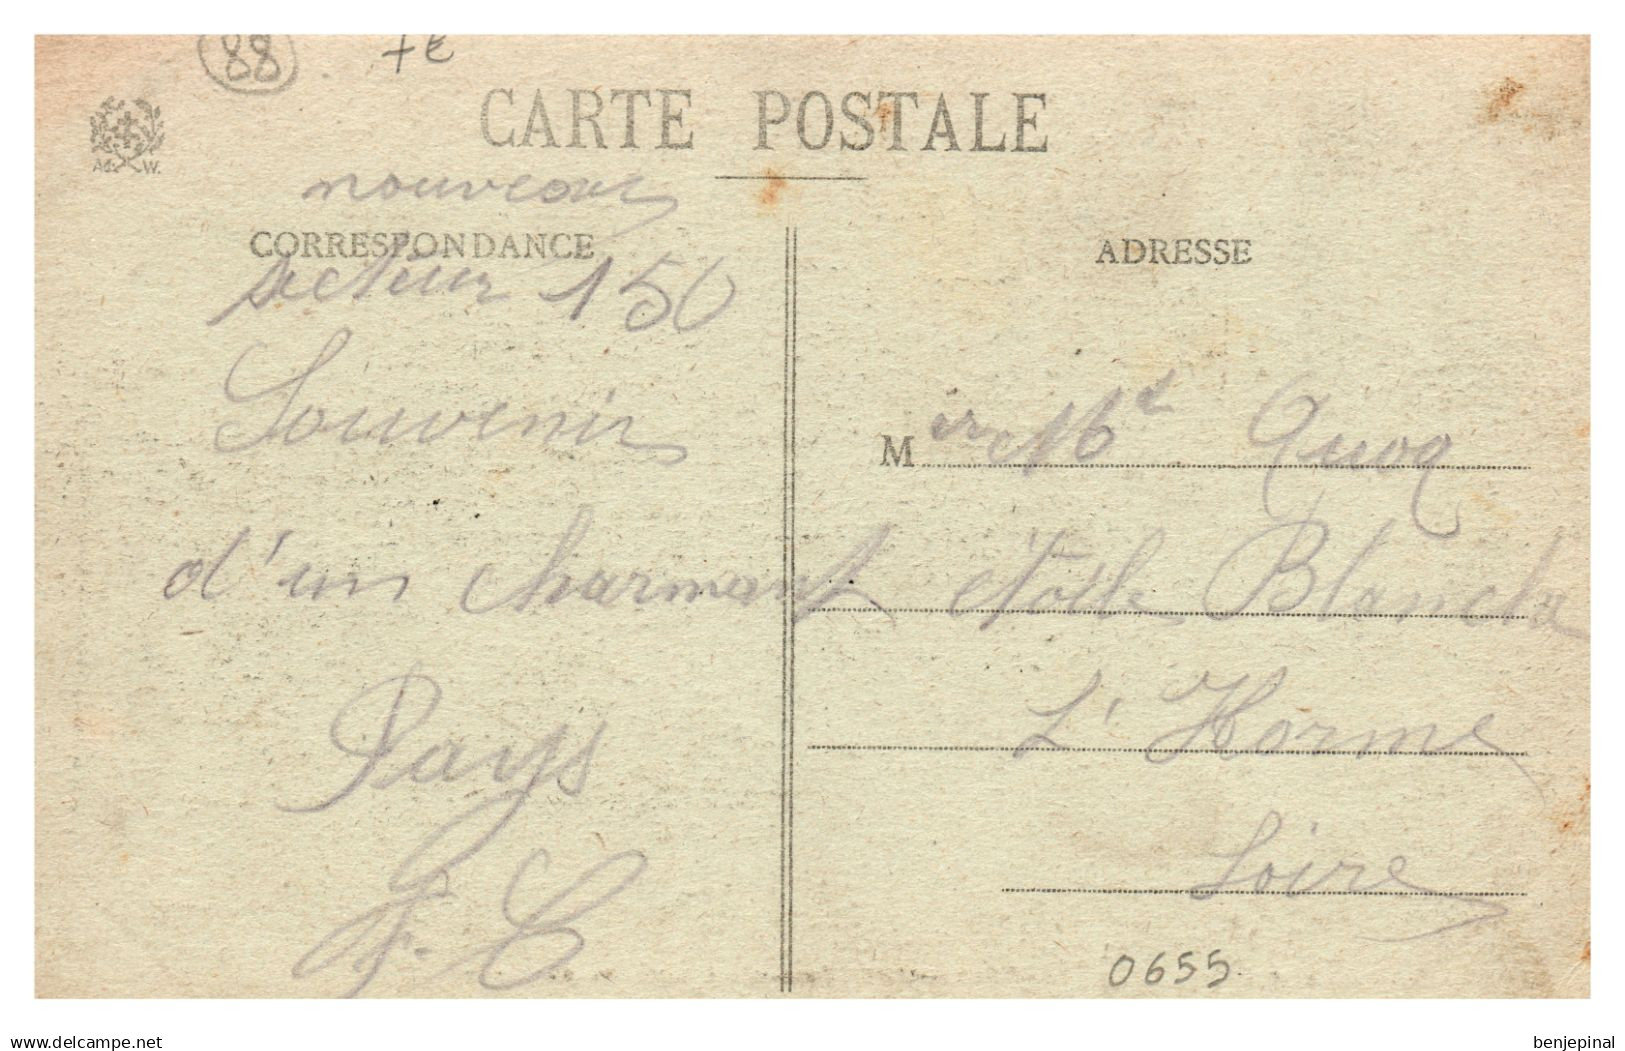 88 7€
CARTE POSTALE
Ad. W.
nouveau
CORRESPONDANCE
secteur 150
Souvenir
d'un charmant
Pays
F. C
ADRESSE
M et Quoq
étoile Blanche
L'Horme
Loire
0655
www.delcampe.net
benjepinal